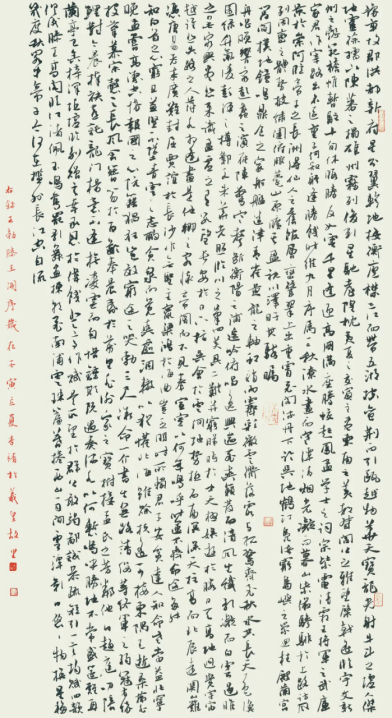 豫章故郡洪都新府星分翼軫地接衡廬襟三江而帶五湖控蠻荊而引甌越物華天寶龍光射牛斗之墟人傑
地靈徐孺下陳蕃之榻雄州霧列俊彩星馳臺隍枕夷夏之交賓主盡東南之美都督閻公之雅望棨戟遙臨宇文新
州之懿範襜帷暫駐十旬休暇勝友如雲千里逢迎高朋滿座騰蛟起鳳孟學士之詞宗紫電清霜王將軍之武庫
家君作宰路出名區童子何知躬逢勝餞時維九月序屬三秋潦水盡而寒潭清煙光凝而暮山紫儼驂騑於上路訪風
景於崇阿臨帝子之長洲得仙人之舊館層巒聳翠上出重霄飛閣流丹下臨無地鶴汀鳧渚窮島嶼之縈迴桂殿蘭宮
列岡巒之體勢披繡闥俯雕甍山原曠其盈視川澤紆其駭矚
閭閻撲地鐘鳴鼎食之家舸艦迷津青雀黃龍之軸虹銷雨霽彩徹雲衢落霞與孤鶩齊飛秋水共長天一色漁
舟唱晚響窮彭蠡之濱雁陣驚寒聲斷衡陽之浦遙吟俯暢逸興遄飛爽籟發而清風生纖歌凝而白雲遏睢
園綠竹氣凌彭澤之樽鄴水朱華光照臨川之筆四美具二難并窮睇眄於中天極娛遊於暇日天高地迥覺宇宙
之無窮興盡悲來識盈虛之有數望長安於日下指吳會於雲間地勢極而南溟深天柱高而北辰遠關山難
越誰悲失路之人萍水相逢盡是他鄉之客懷帝閽而不見奉宣室以何年嗚呼時運不齊命途多舛
馮唐易老李廣難封屈賈誼於長沙非無聖主竄梁鴻於海曲豈乏明時所賴君子安貧達人知命老當益壯寧
知白首之心窮且益堅不墜青雲之志酌貪泉而覺爽處涸轍以猶懽北海雖賒扶搖可接東隅已逝桑榆非
晚孟嘗高潔空懷報國之心阮籍猖狂豈效窮途之哭勃三尺微命一介書生無路請纓等終軍之弱冠有懷
投筆慕宗愨之長風舍簪笏於百齡奉晨昏於萬里非謝家之寶樹接孟氏之芳鄰他日趨庭叨陪
鯉對今晨捧袂喜託龍門楊意不逢撫凌雲而自惜鍾期既遇奏流水以何慚嗚呼勝地不常盛筵難再
蘭亭已矣梓澤丘墟臨別贈言幸承恩於偉餞登高作賦是所望於群公敢竭鄙誠恭疏短引一言均賦四韻
俱成滕王高閣臨江渚佩玉鳴鸞罷歌舞畫棟朝飛南浦雲珠簾暮捲西山雨閒雲潭影日悠悠物換星移
幾度秋閣中帝子今何在檻外長江空自流
右錄王勃滕王閣序歲在壬寅之夏於羲皇故里